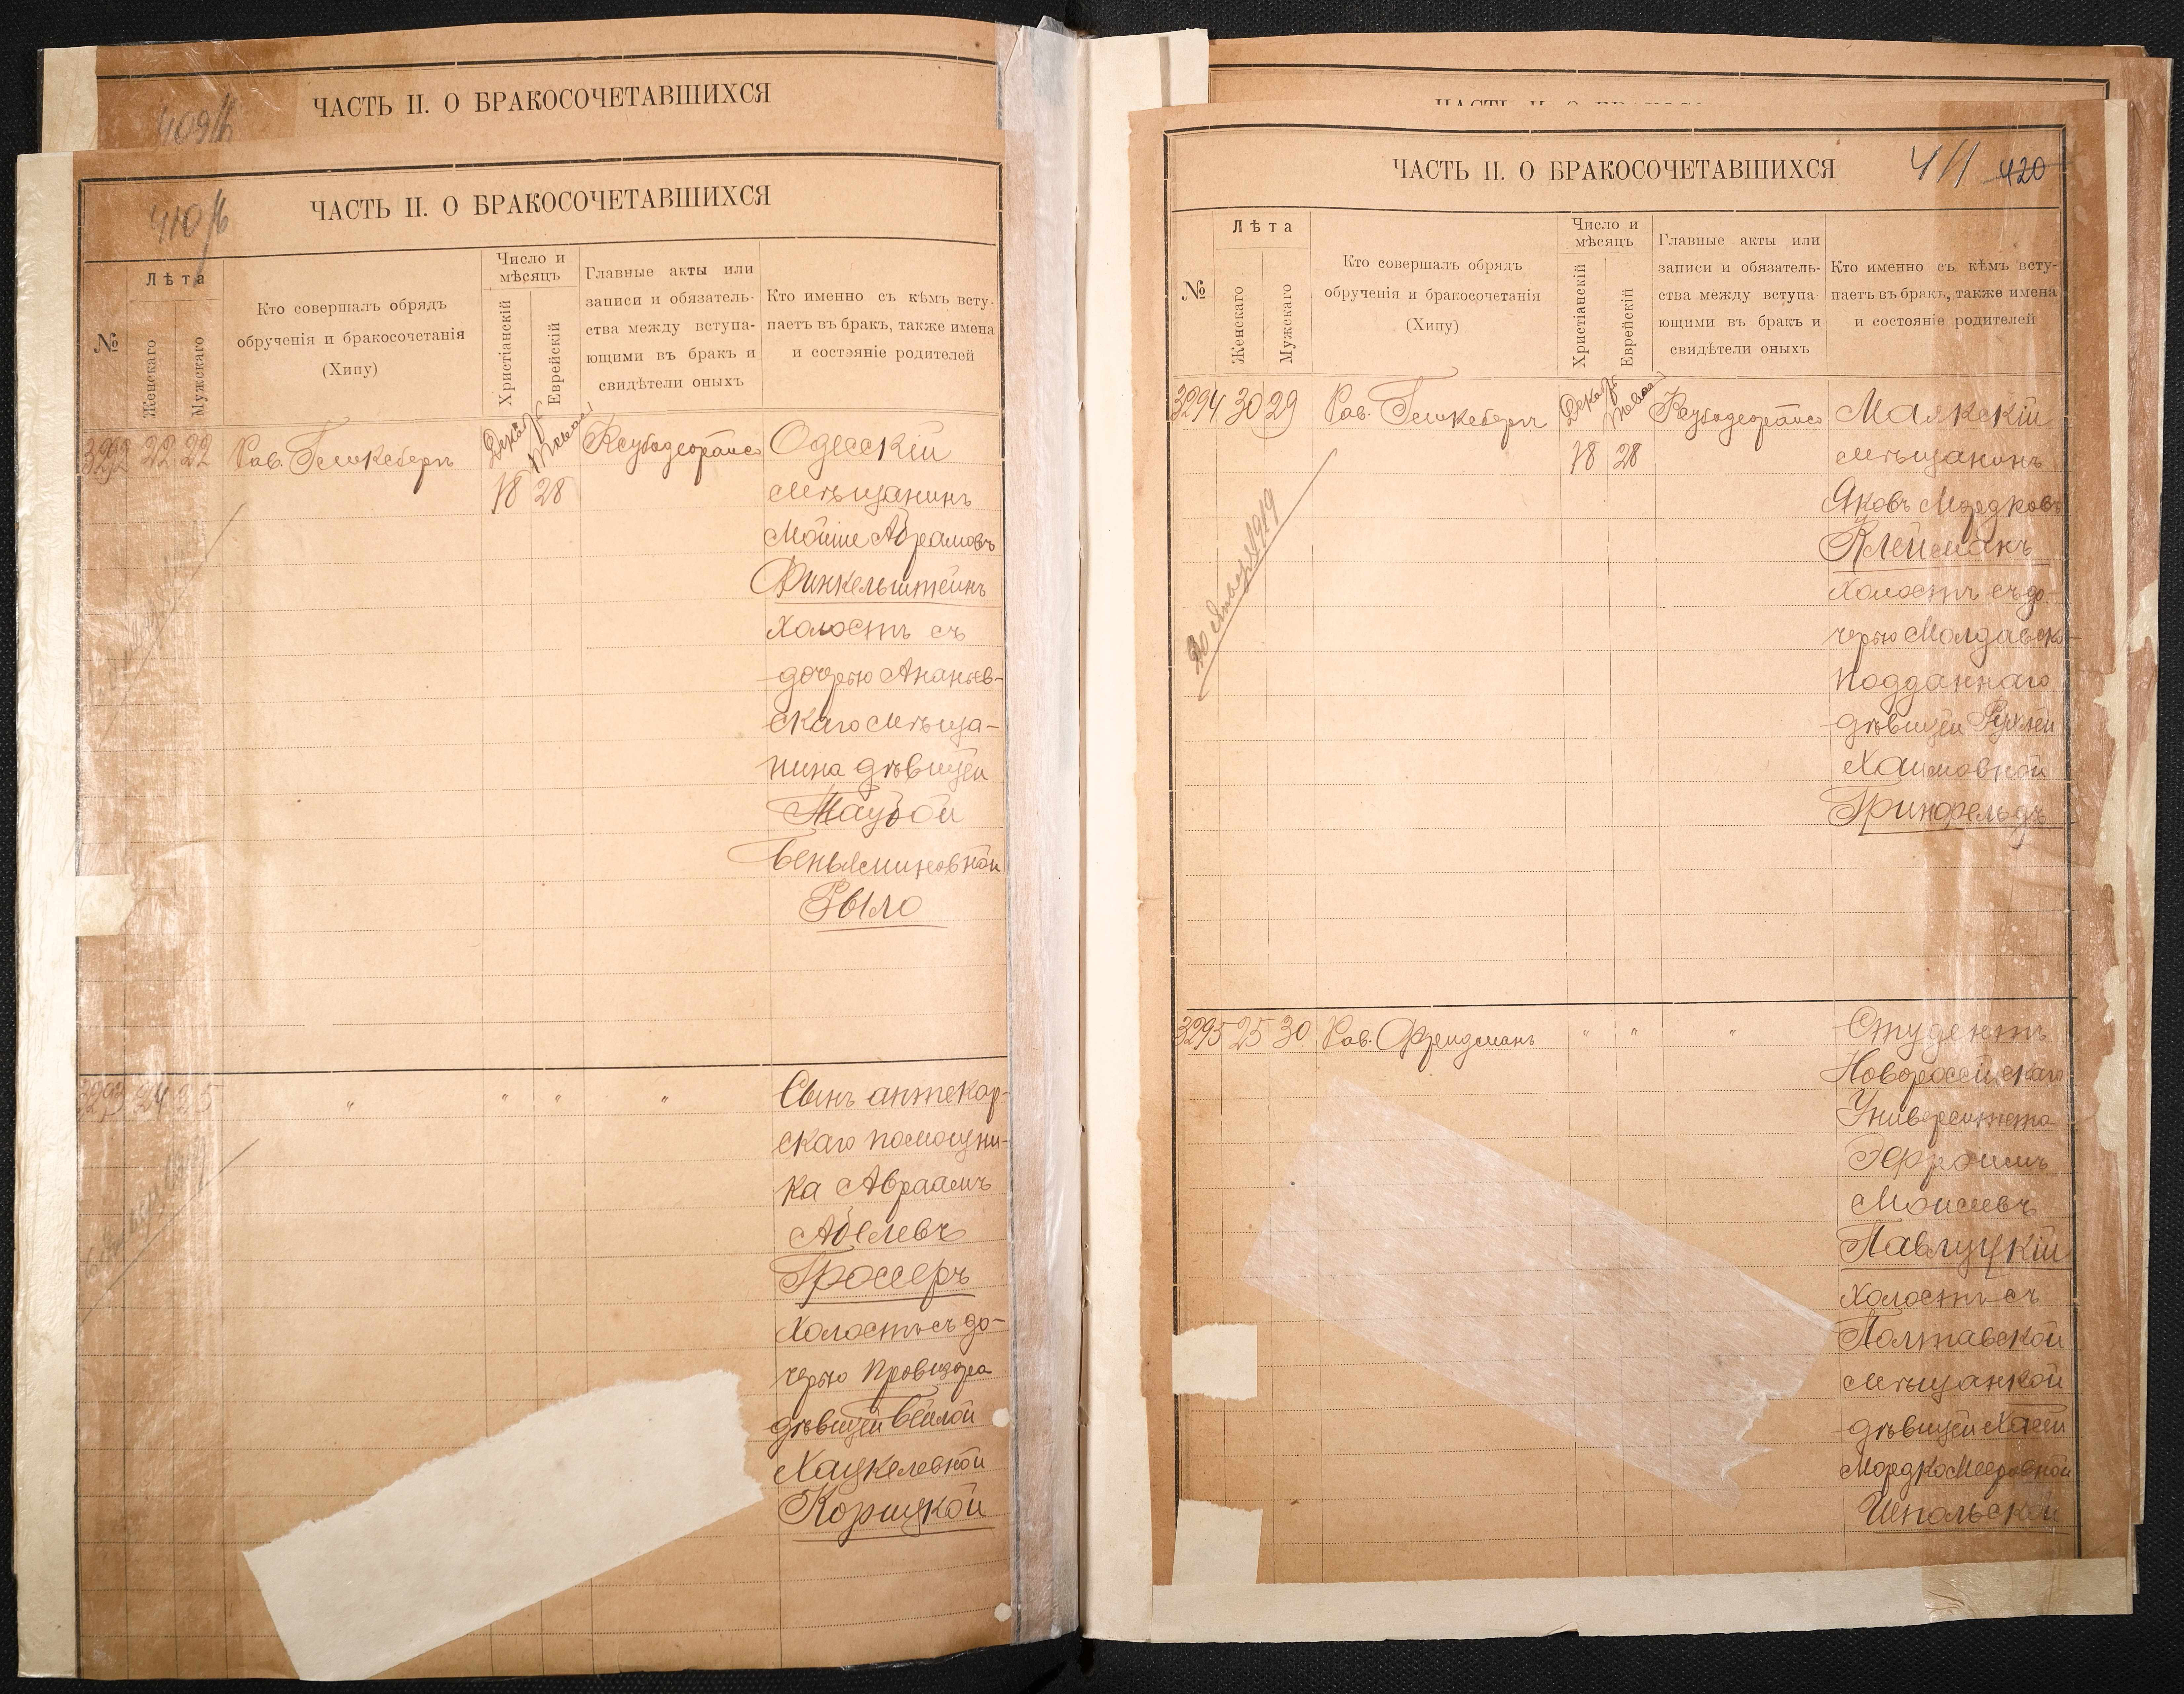 409/б
ЧАСТЬ II. О БРАКОСОЧЕТАВШИХСЯ
410/б
ЧАСТЬ II. О БРАКОСОЧЕТАВШИХСЯ
№
Лѣта
Женскаго
Мужскаго
Кто совершалъ обрядъ
обрученія и бракосочетанія
(Хипу)
Число и
мѣсяцъ
Христіанскій
Еврейскій
Главные акты или
записи и обязатель-
ства между вступа-
ющими въ бракъ и
свидѣтели оныхъ
Кто именно съ кѣмъ всту-
паетъ въ бракъ, также имена
и состояніе родителей
3292 22 22 Рав.
18 28
Одесскій
мѣщанинъ
Мойше Абрамовъ
Финкельштейнъ
холостъ съ
дочерью Ананьев-
скаго мѣща-
нина дѣвицей
Таубой
Беньяминовной
Рыло
3293 24 25 " " " "
Сынъ аптекар-
скаго помощни-
ка Авраамъ
Абелевъ
Гроссеръ
холостъ съ до-
черью провизора
дѣвицей Бейлой
Хацкелевной
Корицкой
ЧАСТЬ II. О БРАКОСОЧЕТАВШИХСЯ
411 420
№
Лѣта
Женскаго
Мужскаго
Кто совершалъ обрядъ
обрученія и бракосочетанія
(Хипу)
Число и
мѣсяцъ
Христіанскій
Еврейскій
Главные акты или
записи и обязатель-
ства между вступа
ющими въ бракъ и
свидѣтели оныхъ
Кто именно съ кѣмъ всту-
паетъ въ бракъ, также имена
и состояніе родителей
3294 30 29 Рав.
18 28
1919
Маякскій
мѣщанинъ
Яковъ Мордковъ
Клейманъ
холостъ съ до-
черью Молдавско-
подданнаго
дѣвицей Рухлей
Хаимовной
Гринфельдъ
3295 25 30 Рав. Фрейдманъ " " "
Студентъ
Новороссійскаго
Университета
Эфроимъ
Моисеевъ
Павлуцкій
холостъ съ
Полтавской
мѣщанкой
дѣвицей Хасей
Мордко Мееровной
Шпольской